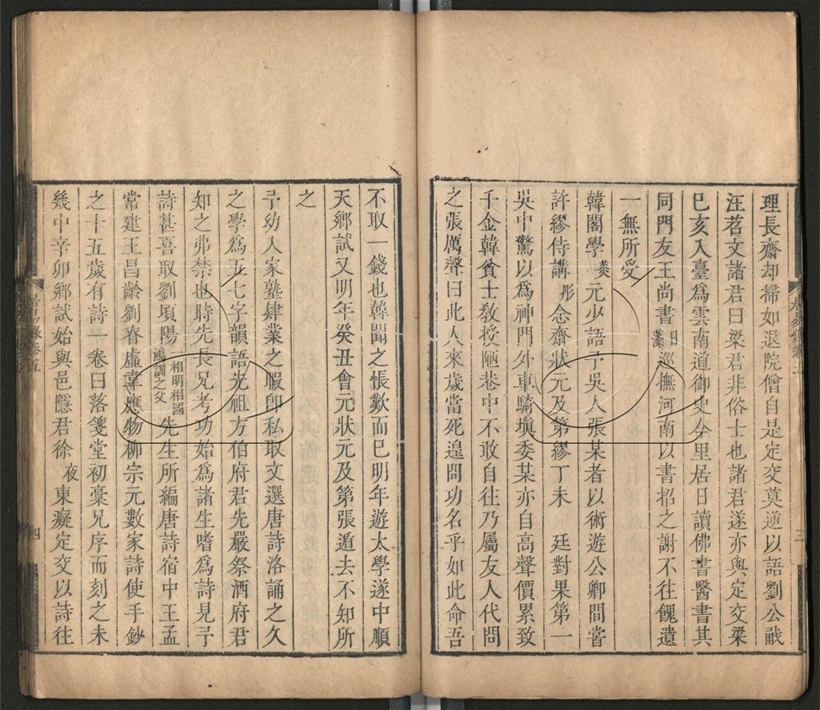 理長齋却掃如退院僧自是定交莫逆以語劉公㦷
汪苕文諸君曰梁君非俗士也諸君遂亦與定交梁
巳亥入臺爲雲南道御史今里居日讀佛書醫書其
同門友王尚書日藻巡撫河南以書招之謝不往餽遺
一無所受
韓閣學菼元少語予吳人張某者以術遊公卿間嘗
許繆侍講彤念齋狀元及第繆丁未 廷對果第一
吳中驚以爲神門外車騎塡委某亦自高聲價累致
千金韓貧士敎授陋巷中不敢自往乃屬友人代問
之張厲聲曰此人來歲當死遑問功名乎如此命吾
不取一錢也韓聞之悵歎而巳明年遊太學遂中順
天鄉試又明年癸丑會元狀元及第張遁去不知所
之
予幼入家塾肄業之暇卽私取文選唐詩洛誦之久
之學爲五七字韻語先祖方伯府君先嚴祭酒府君
知之弗禁也時先長兄考功始爲諸生嗜爲詩見予
詩甚喜取劉頃陽一相明相國鴻訓之父先生所編唐詩宿中王孟
常建王昌齡劉眘虛韋應物柳宗元數家詩使手鈔
之十五歲有詩一卷曰落箋堂初藁兄序而刻之未
幾中辛卯鄉試始與邑隱君徐夜東癡定交以詩往
居易錄卷五
三
四